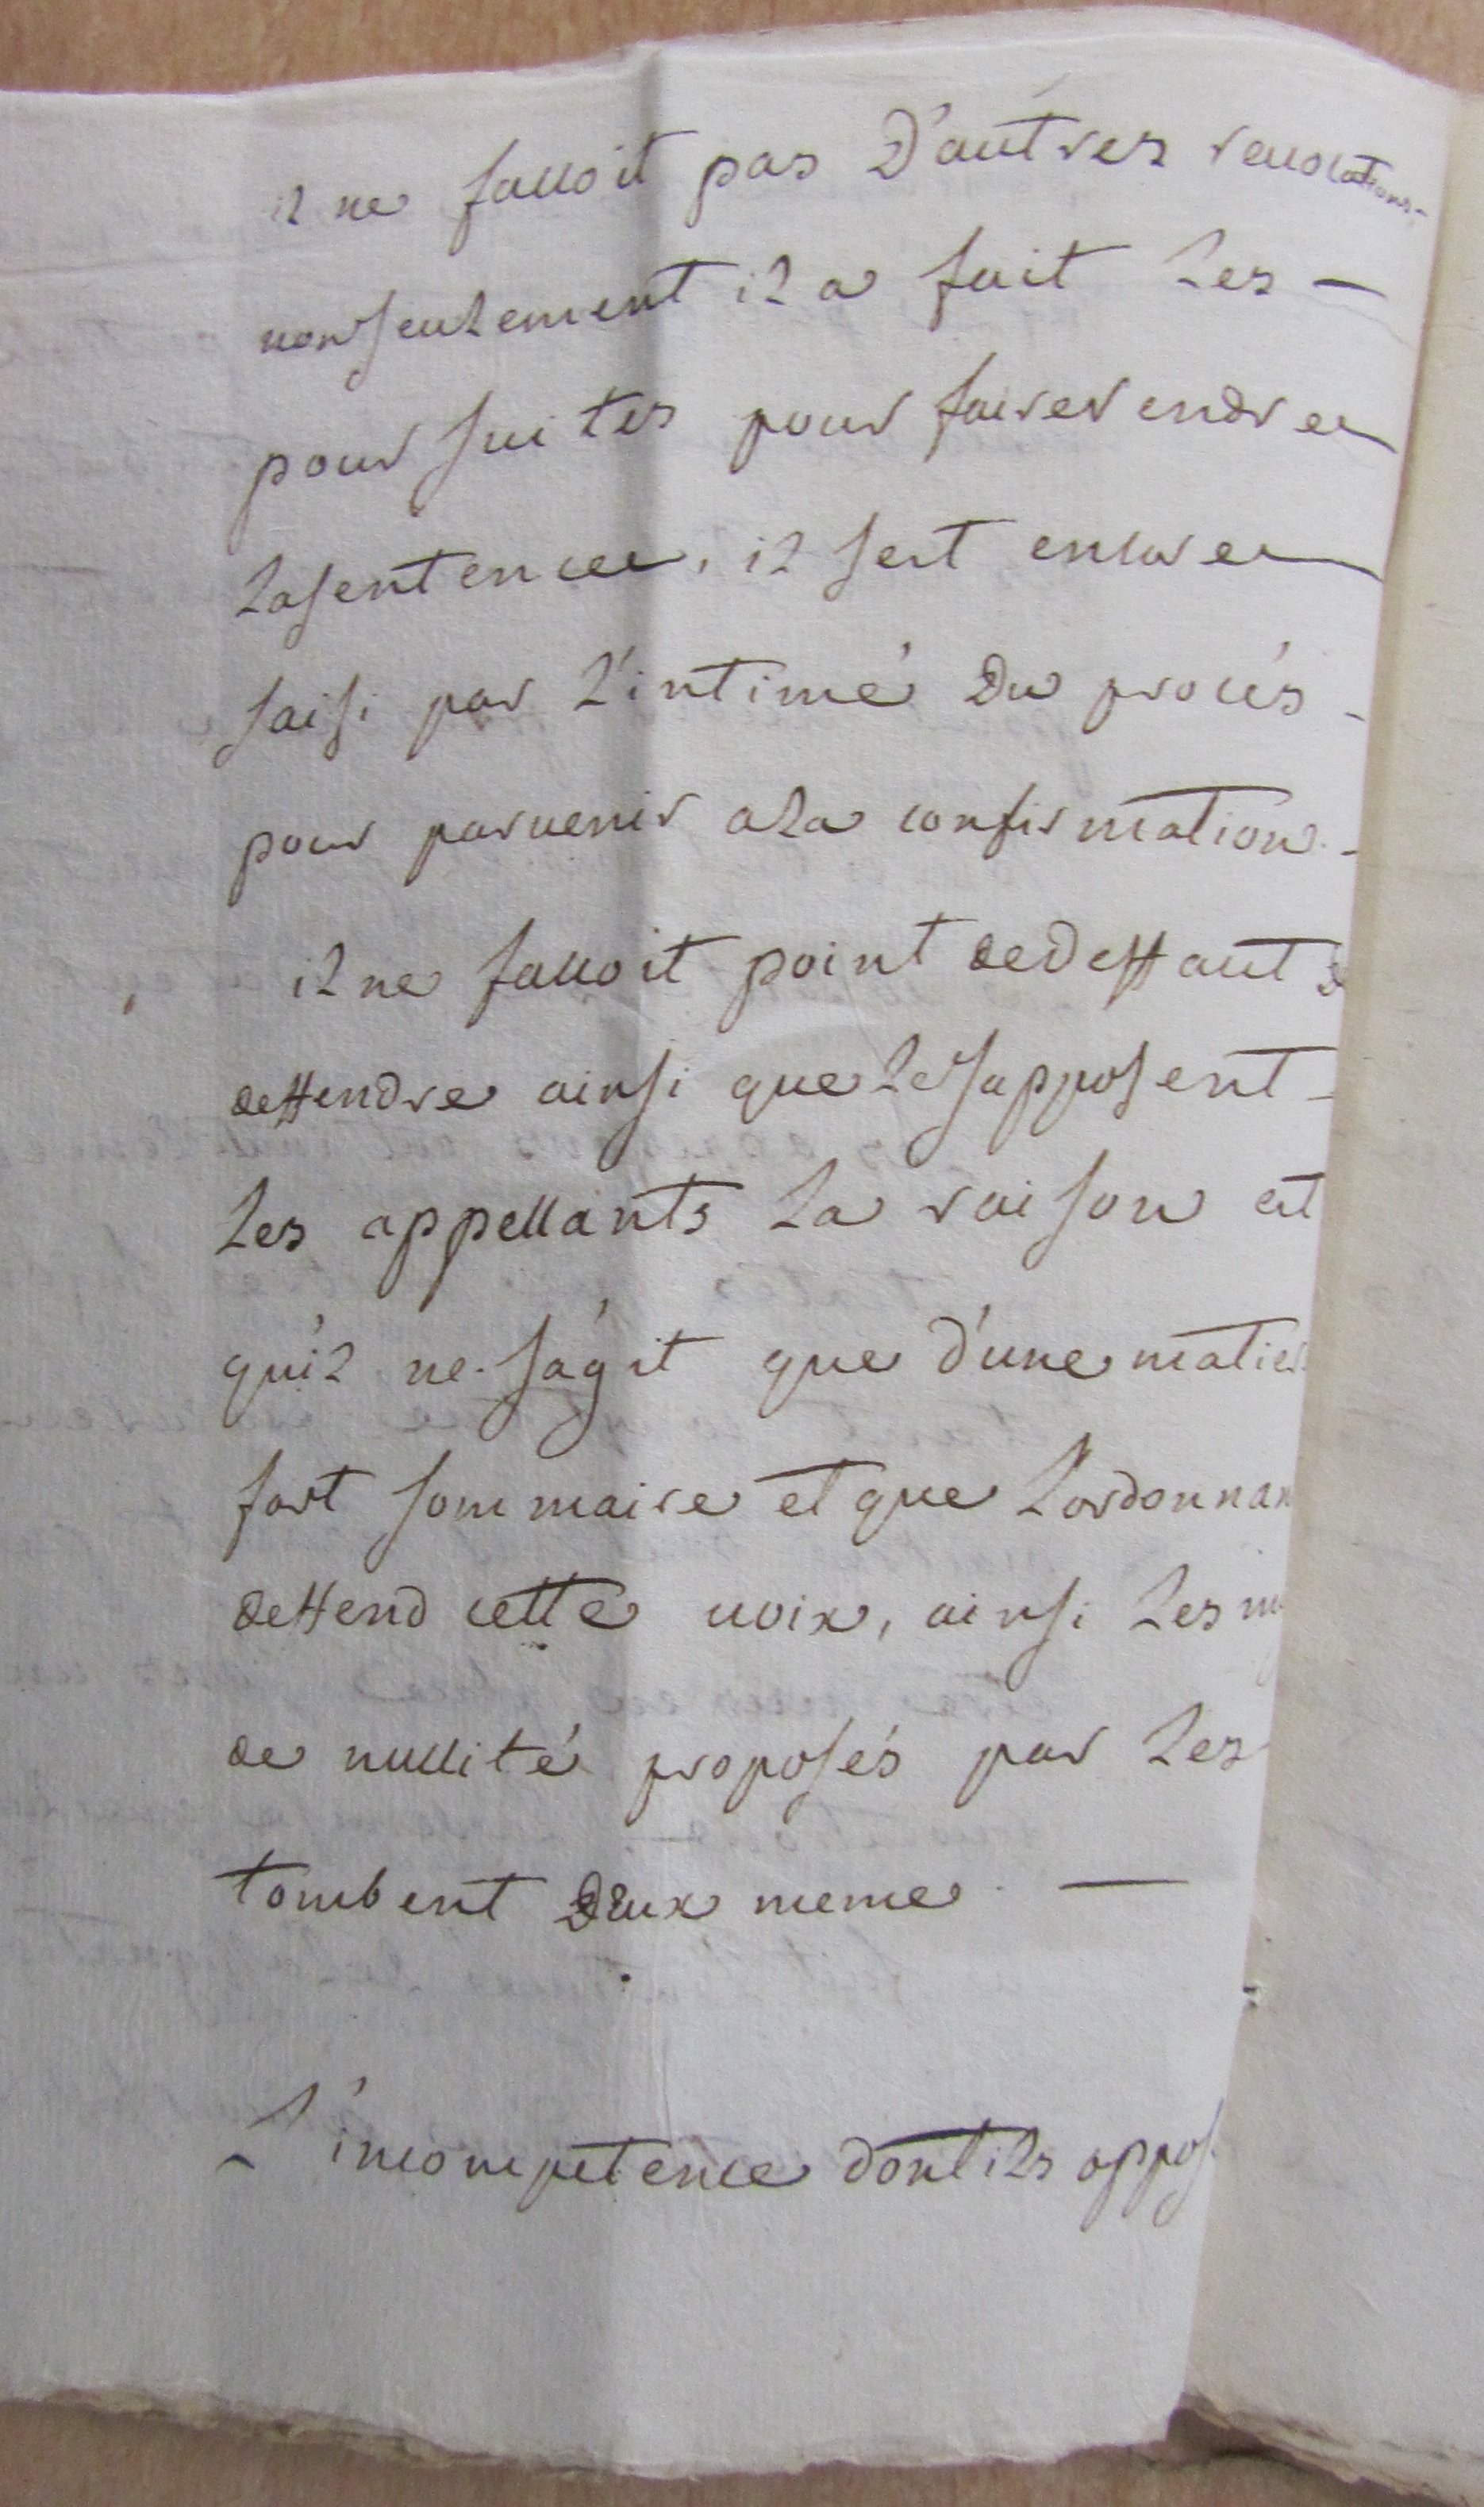 il ne falloit pas D'autres revocations -
nonseulement il a fait les -
poursuites pour faire rendre
lasentence, il sest encore
saisi par l'intimé Du procés -
pour parvenir ala confirmation. -
il ne falloit point dedeffaut
deffendre ainsi que le supposent -
les appellants la raison est
qu'il ne s'ágit que d'une matier
fort sommaire et que l'ordonnan
deffend cette voix, ainsi les
de nullité proposés par les
tombent D'eux meme. —
L'incompetence dont ils oppos